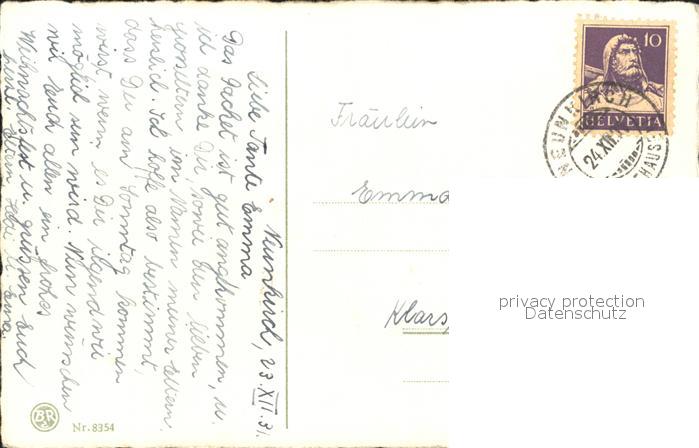 Neunkirch, 23.XII.31.
Liebe Tante Emma
Das Packet ist gut angekommen, u.
ich danke Dir, sowie den lieben
Grosseltern im Namen meiner Eltern
herzlich. Ich hoffe also bestimmt,
dass Du am Sonntag kommen
wirst, wenn es Dir irgendwie
möglich sein wird. Nun wünschen
wir Euch allen ein frohes
Weihnachtsfest u. grüssen Euch
Eltern
Fräulein
Emma
Klars
10
HELVETIA
NEUNKIRCH
24.XII
HAUS
privacy protection
Datenschutz
BR
Nr. 8354